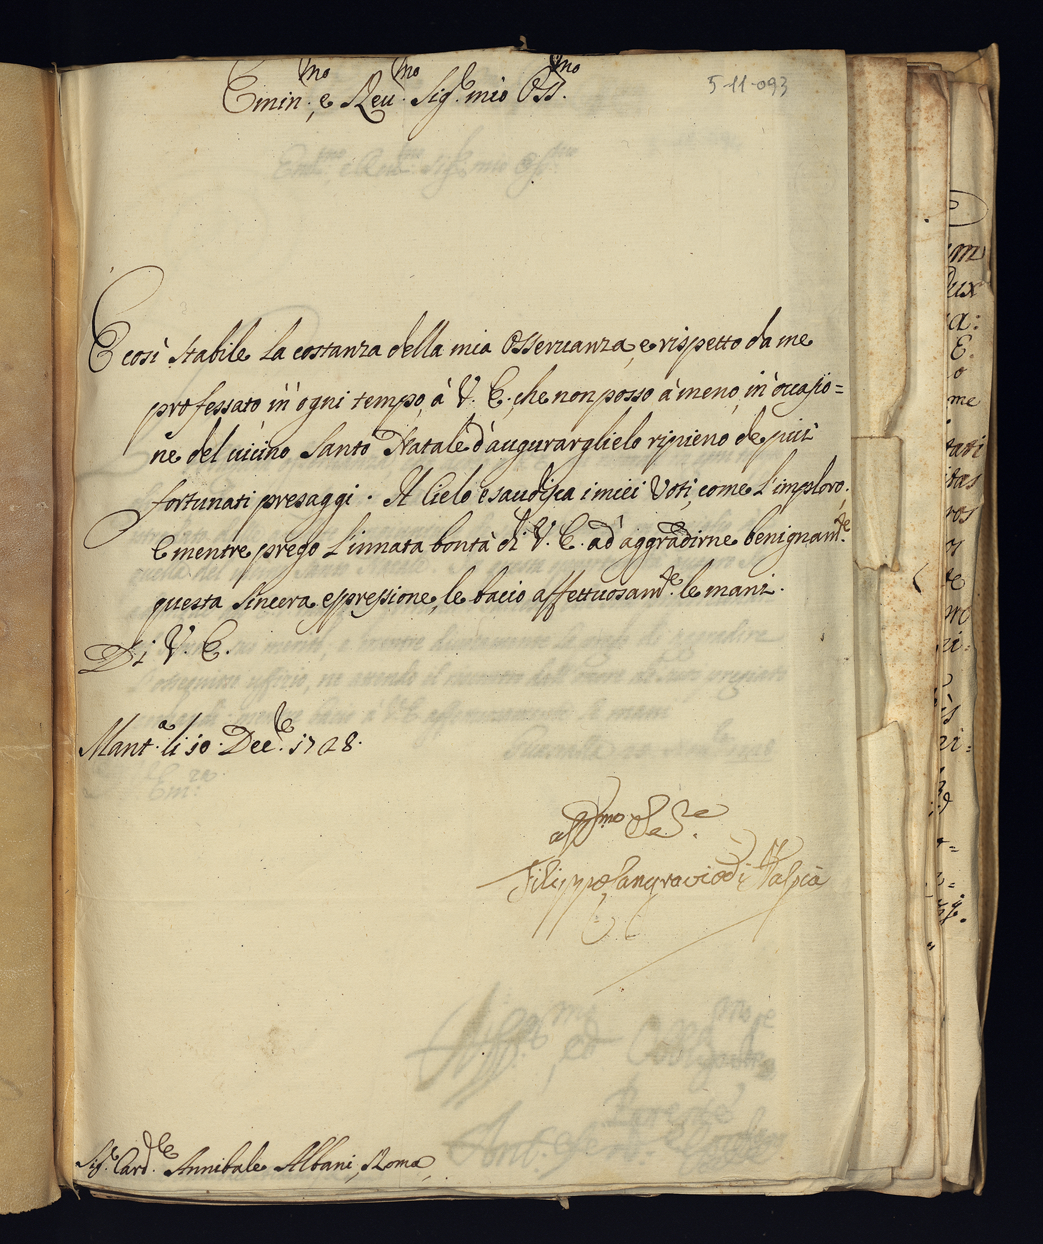 5-11-093
Emin.mo, e Reu.mo Sig.re mio Oss.mo
È così stabile la costanza della mia osseruanza, e rispetto da me
professato in ogni tempo, à V. E. che non posso à meno, in occasio=
ne del uicino Santo Natale d'augurarglielo ripieno de più
fortunati presaggi. Il Cielo esaudisca i miei Voti, come l'imploro.
E mentre prego l'innata bontà di V. E. ad aggradirne benignam.te
questa sincera espressione, le bacio affettuosam.te le mani.
Di V. E.
Mant.a li 10 Dec.e 1728.
aff.mo
Filippo di
Sig.r Card.le Annibale Albani, Roma